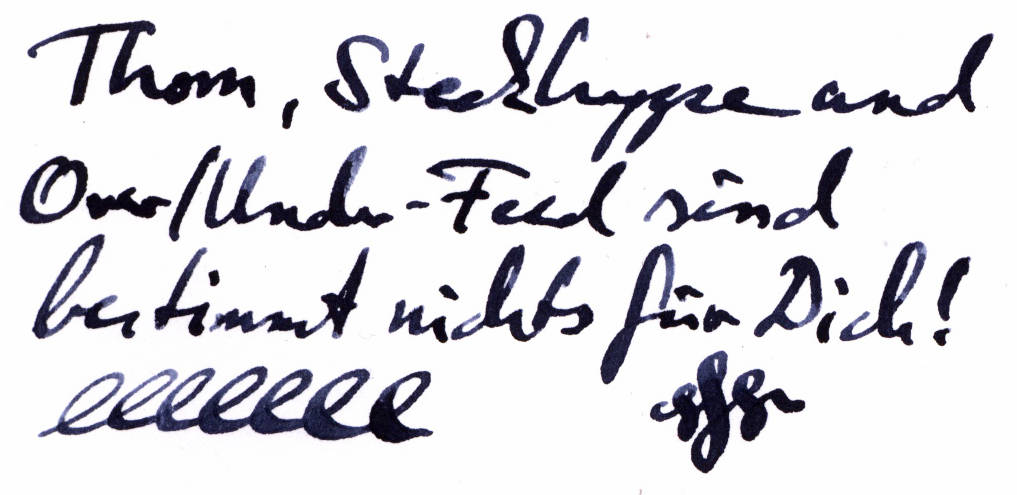 Thom, Steckhygge and
Over/Under-Feed sind
bestimmt nichts für Dich!